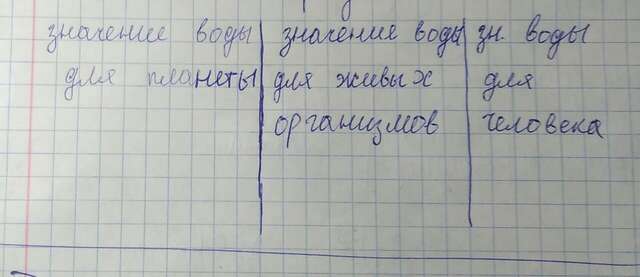 значение воды
для планеты
значение воды
для живых
организмов
зн. воды
для
человека